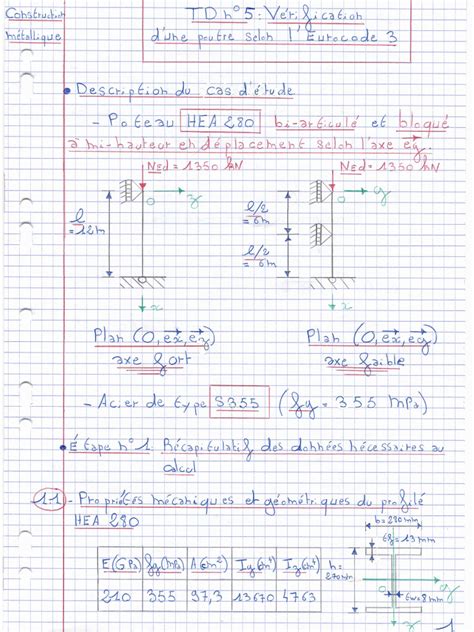 Construction
métallique
TD n°5 : Vérification
d'une poutre selon l'Eurocode 3
• Description du cas d'étude
- Poteau HEA 280 bi-articulé et bloqué
à mi-hauteur en déplacement selon l'axe ey.
NEd = 1350 kN
NEd = 1350 kN
z
y
O
O
l
= 12m
l/2
= 6m
l/2
= 6m
x
x
Plan (O, ex, ez)
axe fort
Plan (O, ex, ey)
axe faible
- Acier de type S355 (fy = 355 MPa)
• Étape n°1. Récapitulatif des données nécessaires au
calcul
1.1 - Propriétés mécaniques et géométriques du profilé
HEA 280
b = 280 mm
tf = 13 mm
E(GPa) fy(MPa) A(cm²) Iy(cm⁴) Iz(cm⁴)
210 355 97,3 13670 4763
h =
270mm
tw = 8 mm
1